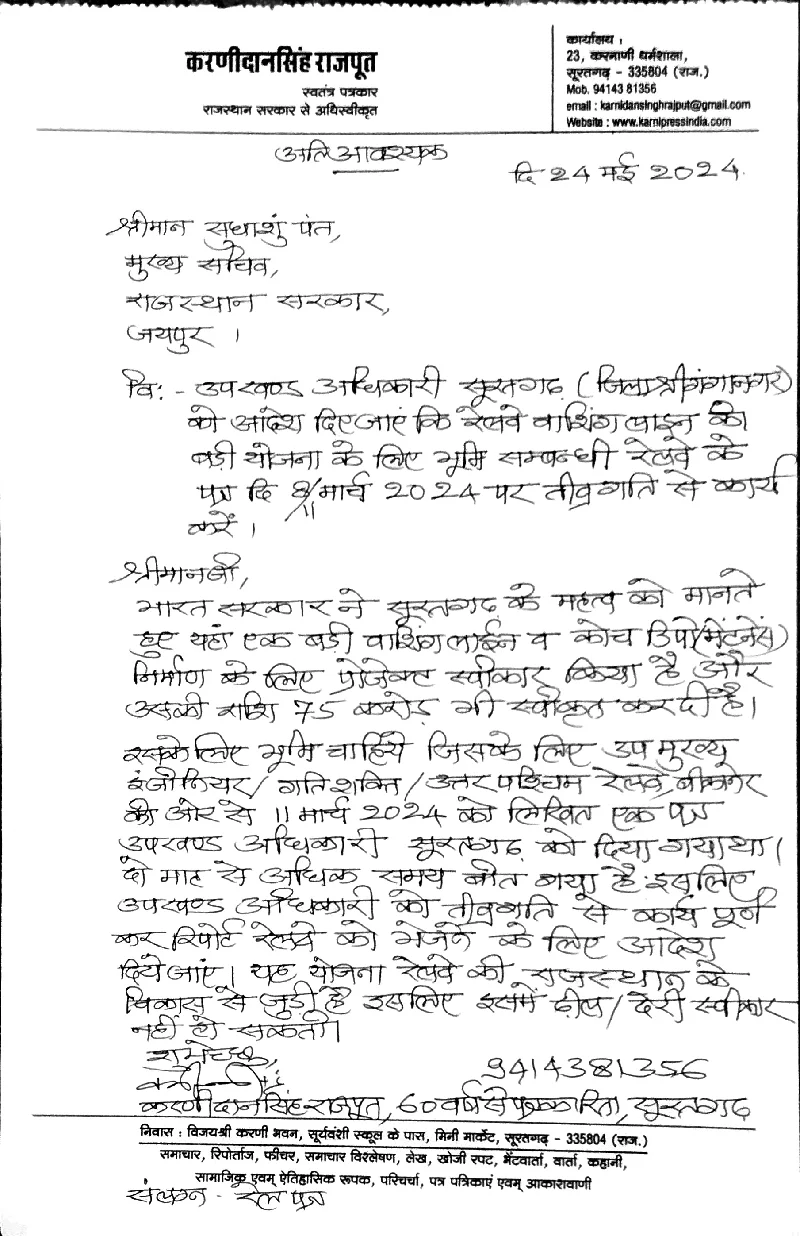 करणीदानसिंह राजपूत
स्वतंत्र पत्रकार
राजस्थान सरकार से अधिस्वीकृत
कार्यालय :
23, करनाणी धर्मशाला,
सूरतगढ़ - 335804 (राज.)
Mob. 94143 81356
email : karnidansinghrajput@gmail.com
Website : www.karnipressindia.com
अति आवश्यक
दि 24 मई 2024.
श्रीमान सुधाशुं पंत,
मुख्य सचिव,
राजस्थान सरकार,
जयपुर ।
वि: - उपखण्ड अधिकारी सूरतगढ़ (जिला श्रीगंगानगर)
को आदेश दिए जाएं कि रेलवे वाशिंग लाइन की
बडी योजना के लिए भूमि सम्बन्धी रेलवे के
पत्र दि 11 मार्च 2024 पर तीव्रगति से कार्य
करें ।
श्रीमानजी,
भारत सरकार ने सूरतगढ के महत्व को मानते
हुए यहां एक बडी वाशिंग लाईन व कोच डिपो (मेंटनेंस)
निर्माण के लिए प्रोजेक्ट स्वीकार किया है और
उसकी राशि 75 करोड़ भी स्वीकृत कर दी है।
इसके लिए भूमि चाहिये जिसके लिए उप मुख्य
इंजीनियर/ गतिशक्ति/उत्तर पश्चिम रेलवे, बीकानेर
की ओर से 11 मार्च 2024 को लिखित एक पत्र
उपखण्ड अधिकारी सूरतगढ़ को दिया गया था।
दो माह से अधिक समय बीत गया है इसलिए
उपखण्ड अधिकारी को तीव्रगति से कार्य पूर्ण
कर रिपोर्ट रेलवे को भेजने के लिए आदेश
दिये जाएं। यह योजना रेलवे की राजस्थान के
विकास से जुडी है इसलिए इसमें ढील/देरी स्वीकार
नहीं हो सकती।
शुभेच्छु,
9414381356
करणीदानसिंह राजपूत, 60 वर्ष से पत्रकारिता, सूरतगढ
निवास : विजयश्री करणी भवन, सूर्यवंशी स्कूल के पास, मिनी मार्केट, सूरतगढ़ - 335804 (राज.)
समाचार, रिपोर्ताज, फीचर, समाचार विश्लेषण, लेख, खोजी रपट, भेंटवार्ता, वार्ता, कहानी,
सामाजिक एवम् ऐतिहासिक रूपक, परिचर्चा, पत्र पत्रिकाएं एवम् आकाशवाणी
संलग्न - रेल पत्र